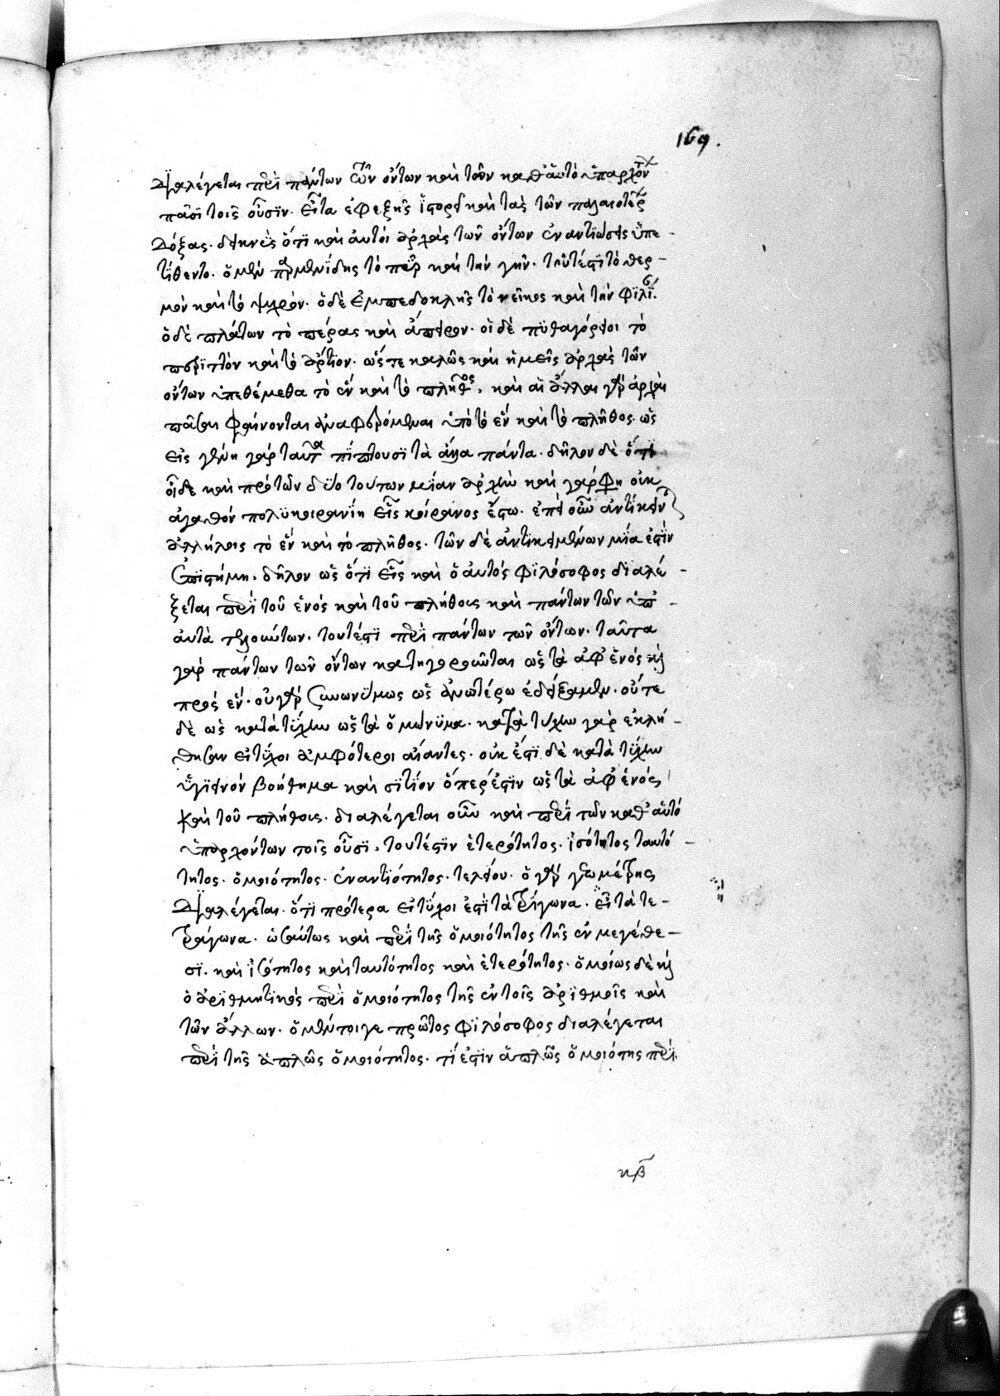 169.
Διαλέγεται περὶ πάντων τῶν ὄντων καὶ τῶν καθ' αὑτὸ ὑπαρχόντων
πᾶσι τοῖς οὖσιν. εἶτα ἐφεξῆς ἱστορεῖ καὶ τὰς τῶν παλαιοτέρων
δόξας. δεικνὺς ὅτι καὶ αὐτοὶ ἀρχὰς τῶν ὄντων ἐναντιώσεις ὑπε-
τίθεντο. ὁ μὲν παρμενίδης τὸ πῦρ καὶ τὴν γῆν. τουτέστι τὸ θερ-
μὸν καὶ τὸ ψυχρόν. ὁ δὲ ἐμπεδοκλῆς τὸ νεῖκος καὶ τὴν φιλίαν.
ὁ δὲ πλάτων τὸ πέρας καὶ ἄπειρον. οἱ δὲ πυθαγόρειοι τὸ
περιττὸν καὶ τὸ ἄρτιον. ὥστε καλῶς καὶ ἡμεῖς ἀρχὰς τῶν
ὄντων ὑπεθέμεθα τὸ ἓν καὶ τὸ πλῆθος, καὶ αἱ ἄλλαι γὰρ ἀρχαὶ
πᾶσαι φαίνονται ἀναφερόμεναι ὑπὸ τὸ ἓν καὶ τὸ πλῆθος. ὡς
εἰς γένη γὰρ ταῦτα πίπτουσι τὰ ἄλλα πάντα. δῆλον δὲ ὅτι
οἶδε καὶ πρὸ τῶν δύο τούτων μίαν ἀρχὴν καὶ γάρ φη οὐκ
ἀγαθὸν πολυκοιρανίη εἷς κοίρανος ἔστω. ἐπεὶ οὖν ἀντίκειται
ἀλλήλοις τὸ ἓν καὶ τὸ πλῆθος. τῶν δὲ ἀντικειμένων μία ἐστὶν
ἐπιστήμη, δῆλον ὡς ὅτι εἷς καὶ ὁ αὐτὸς φιλόσοφος διαλέ-
ξεται περὶ τοῦ ἑνὸς καὶ τοῦ πλήθους καὶ πάντων τῶν ὑπ'
αὐτὰ τελούντων. τουτέστι περὶ πάντων τῶν ὄντων. ταῦτα
γὰρ πάντων τῶν ὄντων κατηγοροῦνται ὡς τὰ ἀφ' ἑνὸς καὶ
πρὸς ἕν. οὐ γὰρ συνωνύμως ὡς ἀνωτέρω ἐδείξαμεν. οὔτε
δὲ ὡς κατὰ τύχην ὡς τὰ ὁμώνυμα. κατὰ τύχην γὰρ ἐκλή-
θησαν εἰ τύχοι ἀμφότεροι αἴαντες. οὐκ ἔστι δὲ κατὰ τύχην
ὑγιεινὸν βοήθημα καὶ σιτίον ὅπερ ἐστὶν ὡς τὰ ἀφ' ἑνός
καὶ τοῦ πλήθους. διαλέγεται οὖν καὶ περὶ τῶν καθ' αὑτὸ
ὑπαρχόντων τοῖς οὖσι, τουτέστιν ἑτερότητος. ἰσότητος ταυτό-
τητος. ὁμοιότητος. ἐναντιότητος. τελείου. ὁ γὰρ γεωμέτρης
διαλέγεται. ὅτι πρότερα εἰ τύχοι ἐστὶ τὰ τρίγωνα. εἶτα τε-
τράγωνα. ὡσαύτως καὶ περὶ τῆς ὁμοιότητος τῆς ἐν μεγέθε-
σι. καὶ ἰσότητος καὶ ταυτότητος καὶ ἑτερότητος. ὁμοίως δὲ καὶ
ὁ ἀριθμητικὸς περὶ ὁμοιότητος τῆς ἐν τοῖς ἀριθμοῖς καὶ
τῶν ἄλλων. ὁ μέντοιγε πρῶτος φιλόσοφος διαλέγεται
περὶ τῆς ἁπλῶς ὁμοιότητος. τί ἐστιν ἁπλῶς ὁμοιότης περὶ
κβ